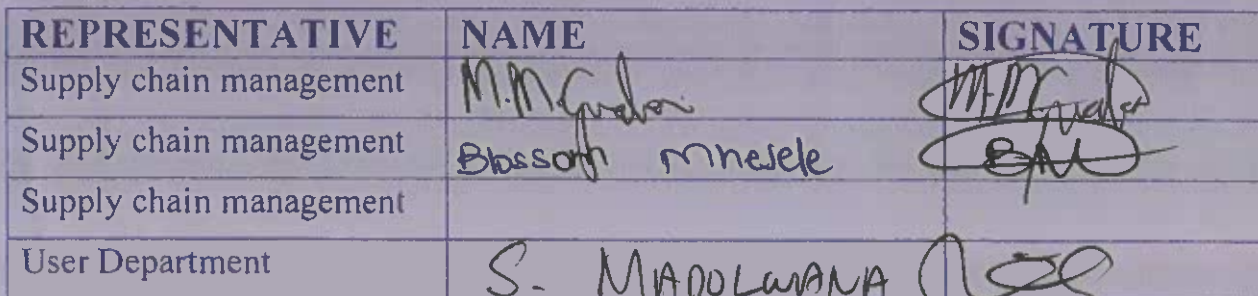 REPRESENTATIVE NAME SIGNATURE
Supply chain management M.M
Supply chain management Blossom Mnesele
Supply chain management
User Department S. MADOLWANA